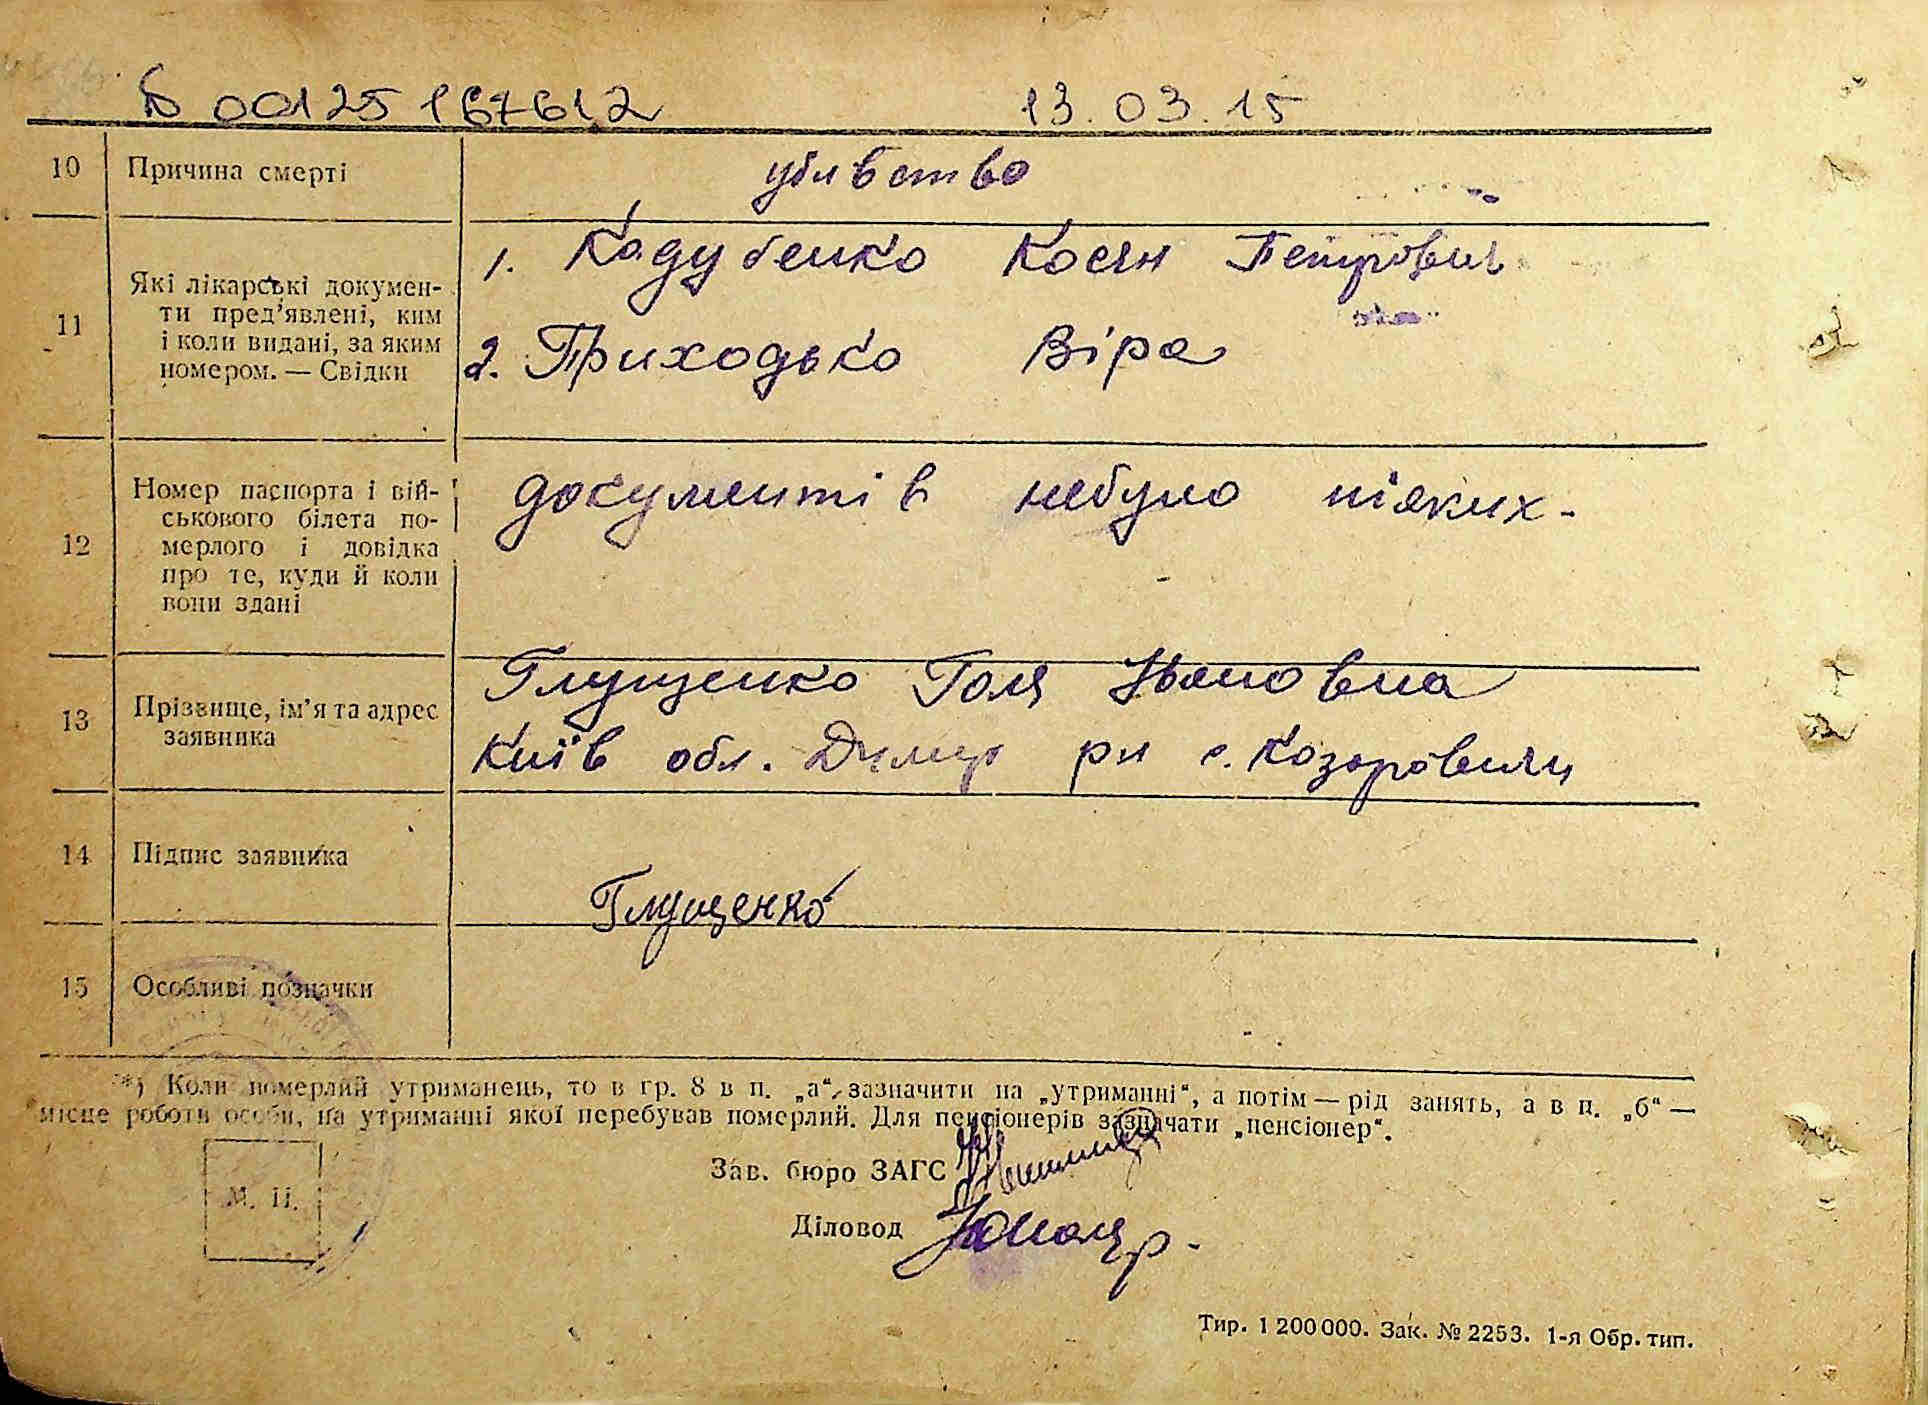 00125 167612 13.03.15
10 Причина смерті убивство
11 Які лікарські докумен-
ти пред’явлені, ким
і коли видані, за яким
номером. — Свідки
1. Кадубенко Косян Петрович
2. Приходько Віра
12 Номер паспорта і вій-
ського білета по-
мерлого і довідка
про те, куди й коли
вони здані
документів небуло ніяких-
13 Прізвище, ім’я та адрес
заявника
Глущенко Галя Івановна
Київ обл. Димер рн с. Козаровичи
14 Підпис заявника
Глущенко
15 Особливі позначки
*) Коли померлий утриманець, то в гр. 8 в п. „а“ зазначити на „утриманні“, а потім — рід занять, а в п. „б“ —
місце роботи особи, на утриманні якої перебував померлий. Для пенсіонерів зазначати „пенсіонер“.
Зав. бюро ЗАГС
Діловод
М. П.
Тир. 1 200 000. Зак. № 2253. 1-я Обр. тип.